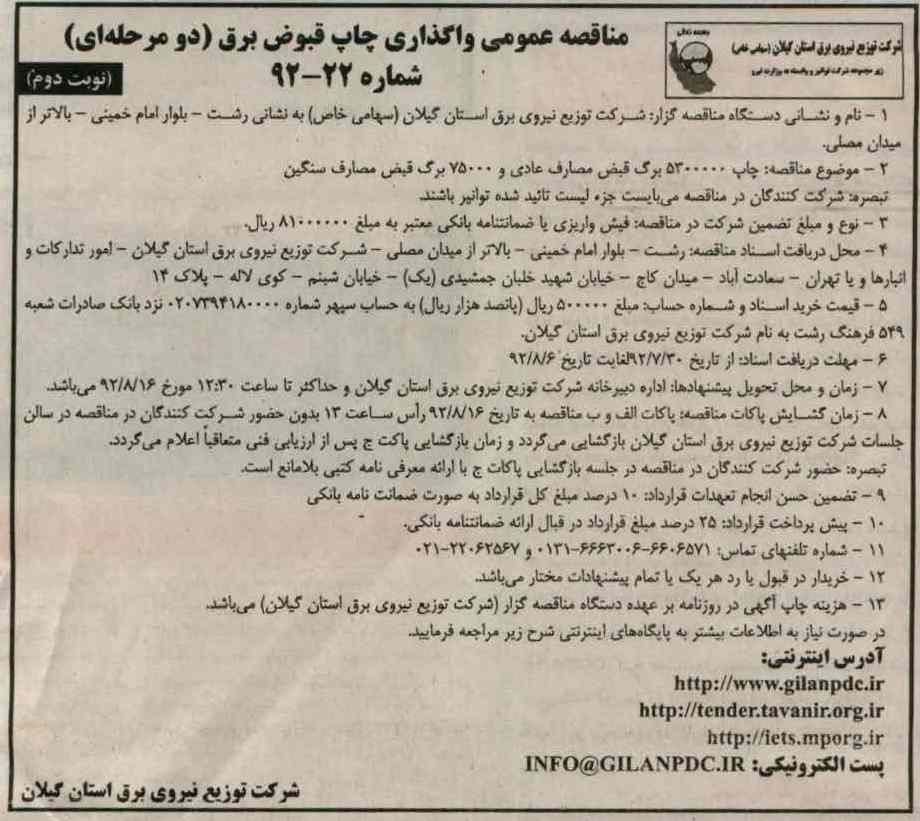 مناقصه عمومی واگذاری چاپ قبوض برق (دو مرحله‌ای)
شماره ۲۲-۹۲
(نوبت دوم)
شرکت توزیع نیروی برق استان گیلان (سهامی خاص)
زیر مجموعه شرکت توانیر و وابسته به وزارت نیرو
۱ - نام و نشانی دستگاه مناقصه گزار: شرکت توزیع نیروی برق استان گیلان (سهامی خاص) به نشانی رشت - بلوار امام خمینی - بالاتر از
میدان مصلی.
۲ - موضوع مناقصه: چاپ ۵۳۰۰۰۰۰ برگ قبض مصارف عادی و ۷۵۰۰۰ برگ قبض مصارف سنگین
تبصره: شرکت کنندگان در مناقصه می‌بایست جزء لیست تائید شده توانیر باشند.
۳ - نوع و مبلغ تضمین شرکت در مناقصه: فیش واریزی یا ضمانتنامه بانکی معتبر به مبلغ ۸۱۰۰۰۰۰۰ ریال.
۴ - محل دریافت اسناد مناقصه: رشت - بلوار امام خمینی - بالاتر از میدان مصلی - شرکت توزیع نیروی برق استان گیلان - امور تدارکات و
انبارها و یا تهران - سعادت آباد - میدان کاج - خیابان شهید خلبان جمشیدی (یک) - خیابان شبنم - کوی لاله - پلاک ۱۴
۵ - قیمت خرید اسناد و شماره حساب: مبلغ ۵۰۰۰۰۰ ریال (پانصد هزار ریال) به حساب سپهر شماره ۰۲۰۷۳۹۴۱۸۰۰۰۰ نزد بانک صادرات شعبه
۵۴۹ فرهنگ رشت به نام شرکت توزیع نیروی برق استان گیلان.
۶ - مهلت دریافت اسناد: از تاریخ ۹۲/۷/۳۰ لغایت تاریخ ۹۲/۸/۶
۷ - زمان و محل تحویل پیشنهادها: اداره دبیرخانه شرکت توزیع نیروی برق استان گیلان و حداکثر تا ساعت ۱۲:۳۰ مورخ ۹۲/۸/۱۶ می‌باشد.
۸ - زمان گشایش پاکات مناقصه: پاکات الف و ب مناقصه به تاریخ ۹۲/۸/۱۶ رأس ساعت ۱۳ بدون حضور شرکت کنندگان در مناقصه در سالن
جلسات شرکت توزیع نیروی برق استان گیلان بازگشایی می‌گردد و زمان بازگشایی پاکت ج پس از ارزیابی فنی متعاقباً اعلام می‌گردد.
تبصره: حضور شرکت کنندگان در مناقصه در جلسه بازگشایی پاکات ج با ارائه معرفی نامه کتبی بلامانع است.
۹ - تضمین حسن انجام تعهدات قرارداد: ۱۰ درصد مبلغ کل قرارداد به صورت ضمانت نامه بانکی
۱۰ - پیش پرداخت قرارداد: ۲۵ درصد مبلغ قرارداد در قبال ارائه ضمانتنامه بانکی.
۱۱ - شماره تلفنهای تماس: ۶۶۰۶۵۷۱-۶۶۶۳۰۰۶-۰۱۳۱ و ۲۲۰۶۲۵۶۷-۰۲۱
۱۲ - خریدار در قبول یا رد هر یک یا تمام پیشنهادات مختار می‌باشد.
۱۳ - هزینه چاپ آگهی در روزنامه بر عهده دستگاه مناقصه گزار (شرکت توزیع نیروی برق استان گیلان) می‌باشد.
در صورت نیاز به اطلاعات بیشتر به پایگاه‌های اینترنتی شرح زیر مراجعه فرمایید.
آدرس اینترنتی:
http://www.gilanpdc.ir
http://tender.tavanir.org.ir
http://iets.mporg.ir
پست الکترونیکی: INFO@GILANPDC.IR
شرکت توزیع نیروی برق استان گیلان